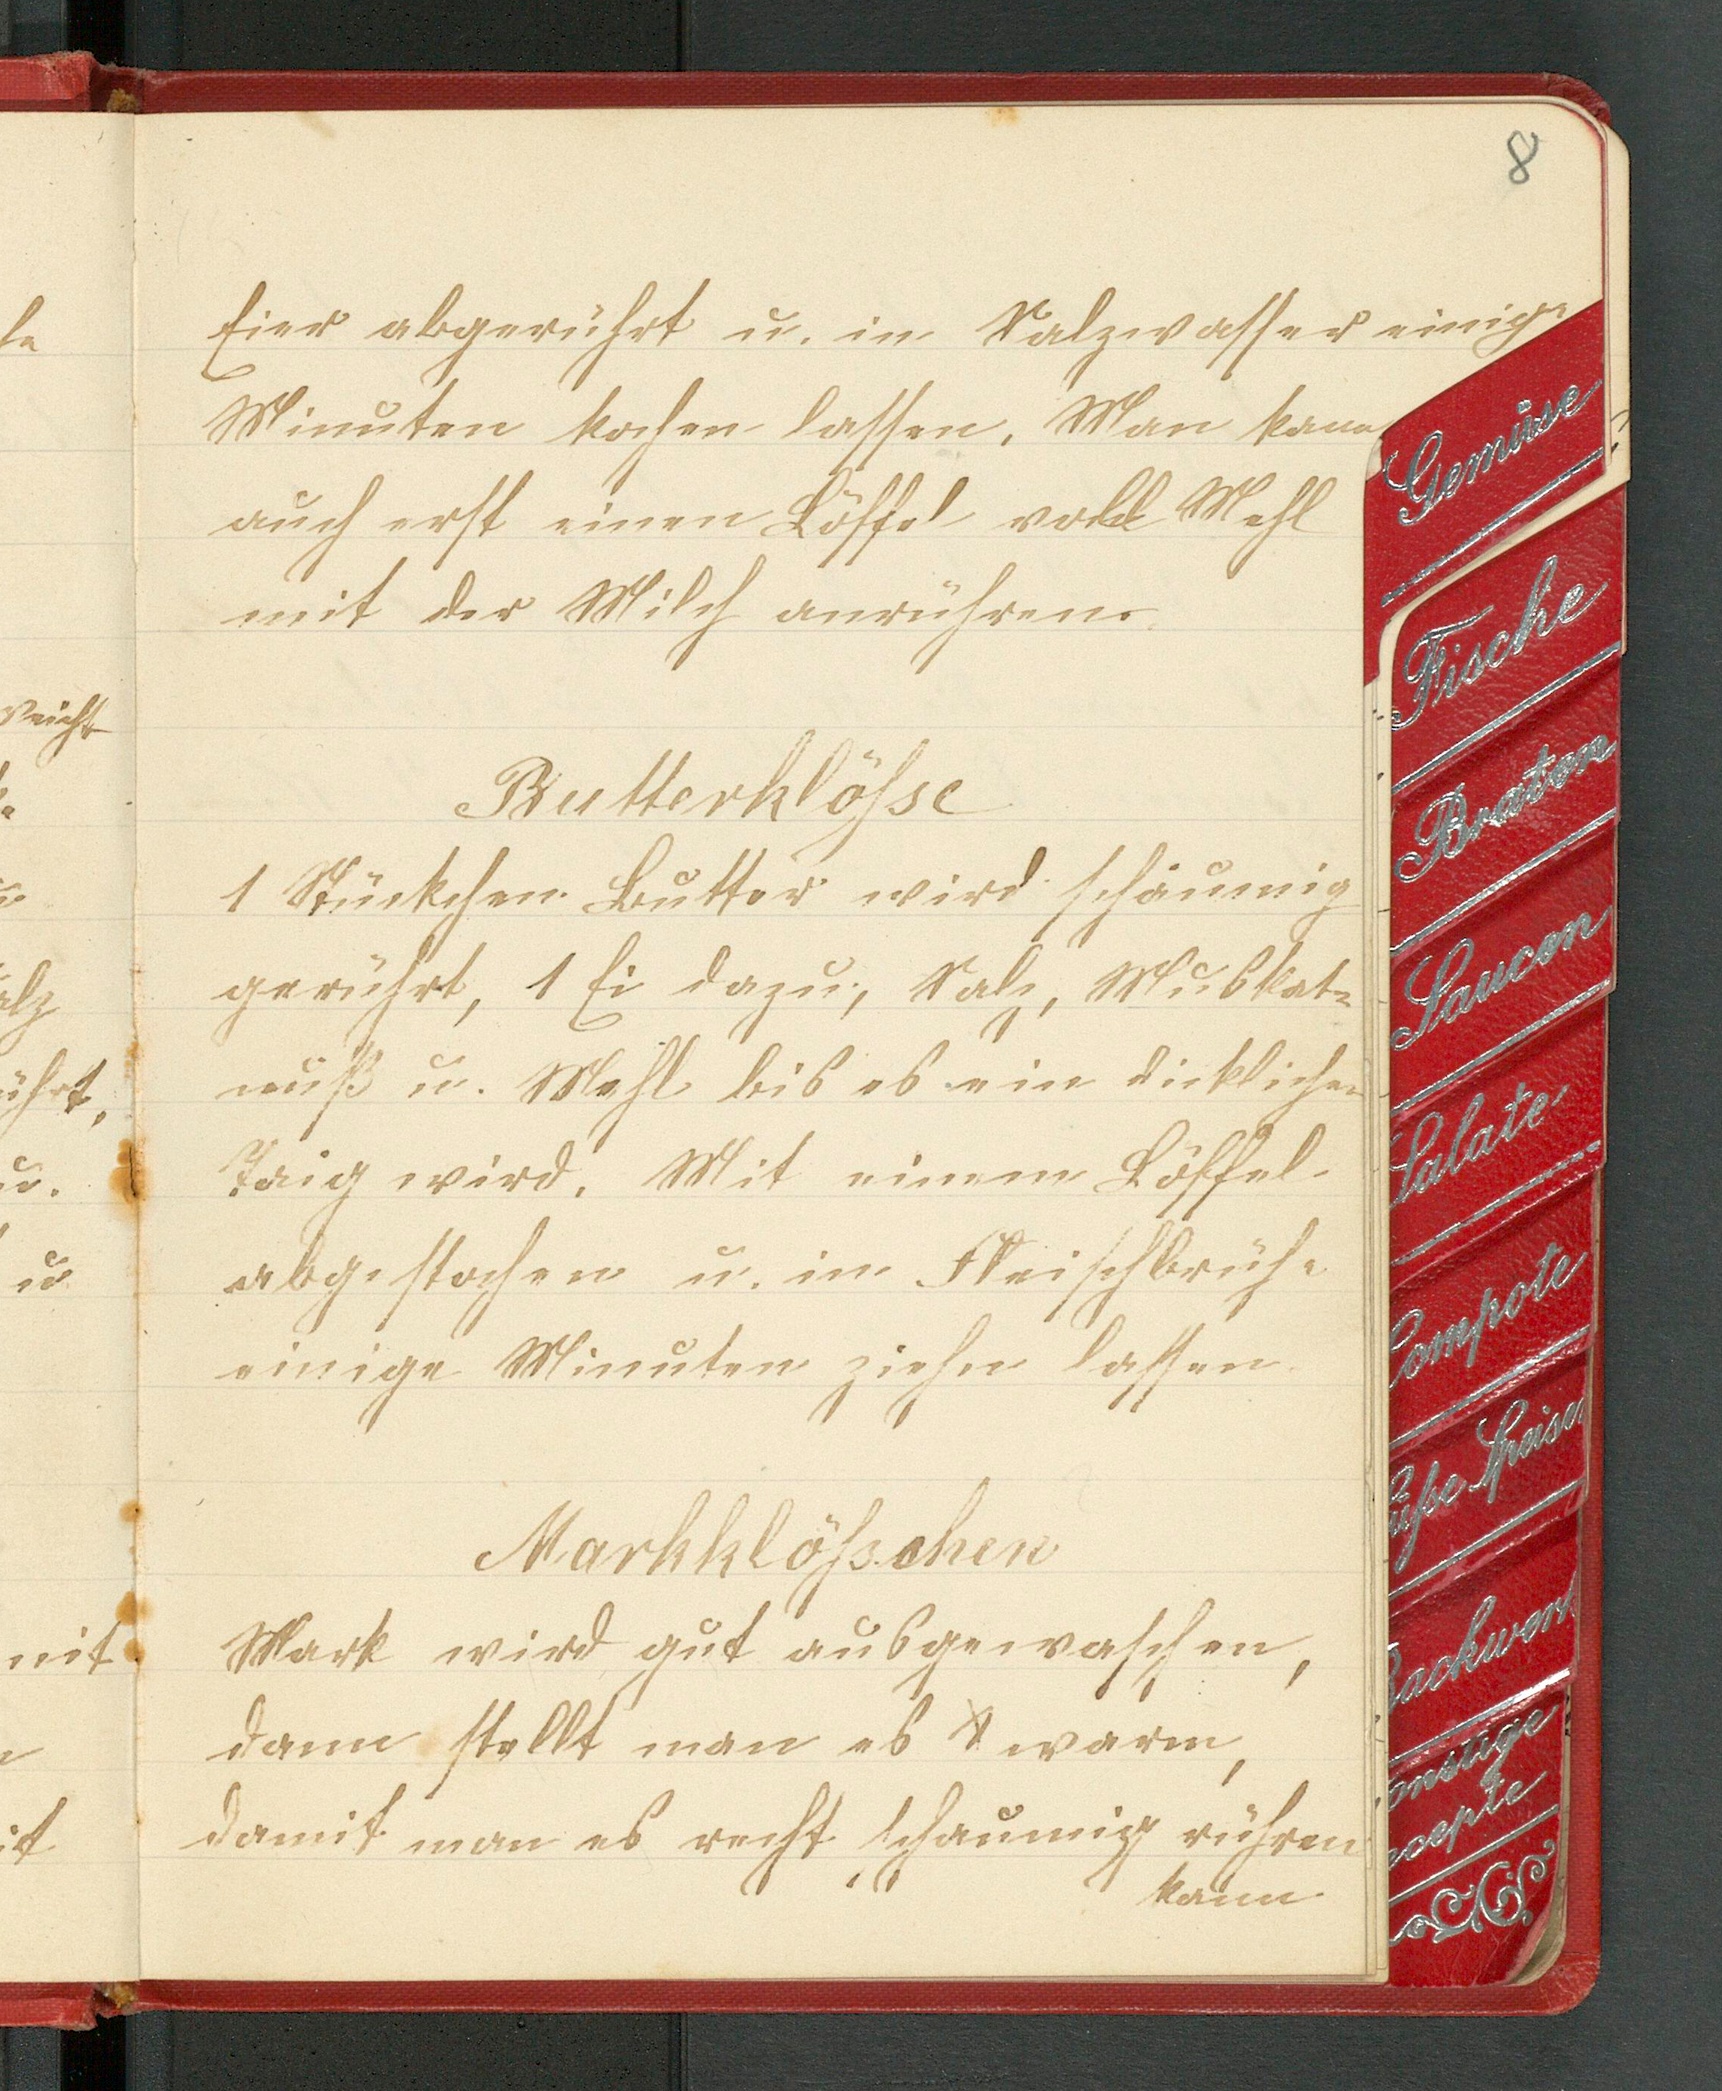 8
Eier abgerührt u. in Salzwasser einige
Minuten kochen lassen. Man kann
auch erst einen Löffel voll Mehl
mit der Milch anrühren.
Butterklösse
1 Stückchen Butter wird schäumig
gerührt, 1 Ei dazu, Salz, Muskat-
nuß u. Mehl bis es ein dicklicher
Taig wird. Mit einem Löffel
abgestochen u. in Fleischbrühe
einige Minuten ziehn lassen
Markklösschen
Mark wird gut ausgewaschen,
dann stellt man es warm,
damit man es recht schaumig rühren
kann
Gemüse
Fische
Braten
Saucen
Salate
Compote
üße Speisen
Backwerk
onstige
ecepte
eicht
alz
ührt,
u.
u
mit
it